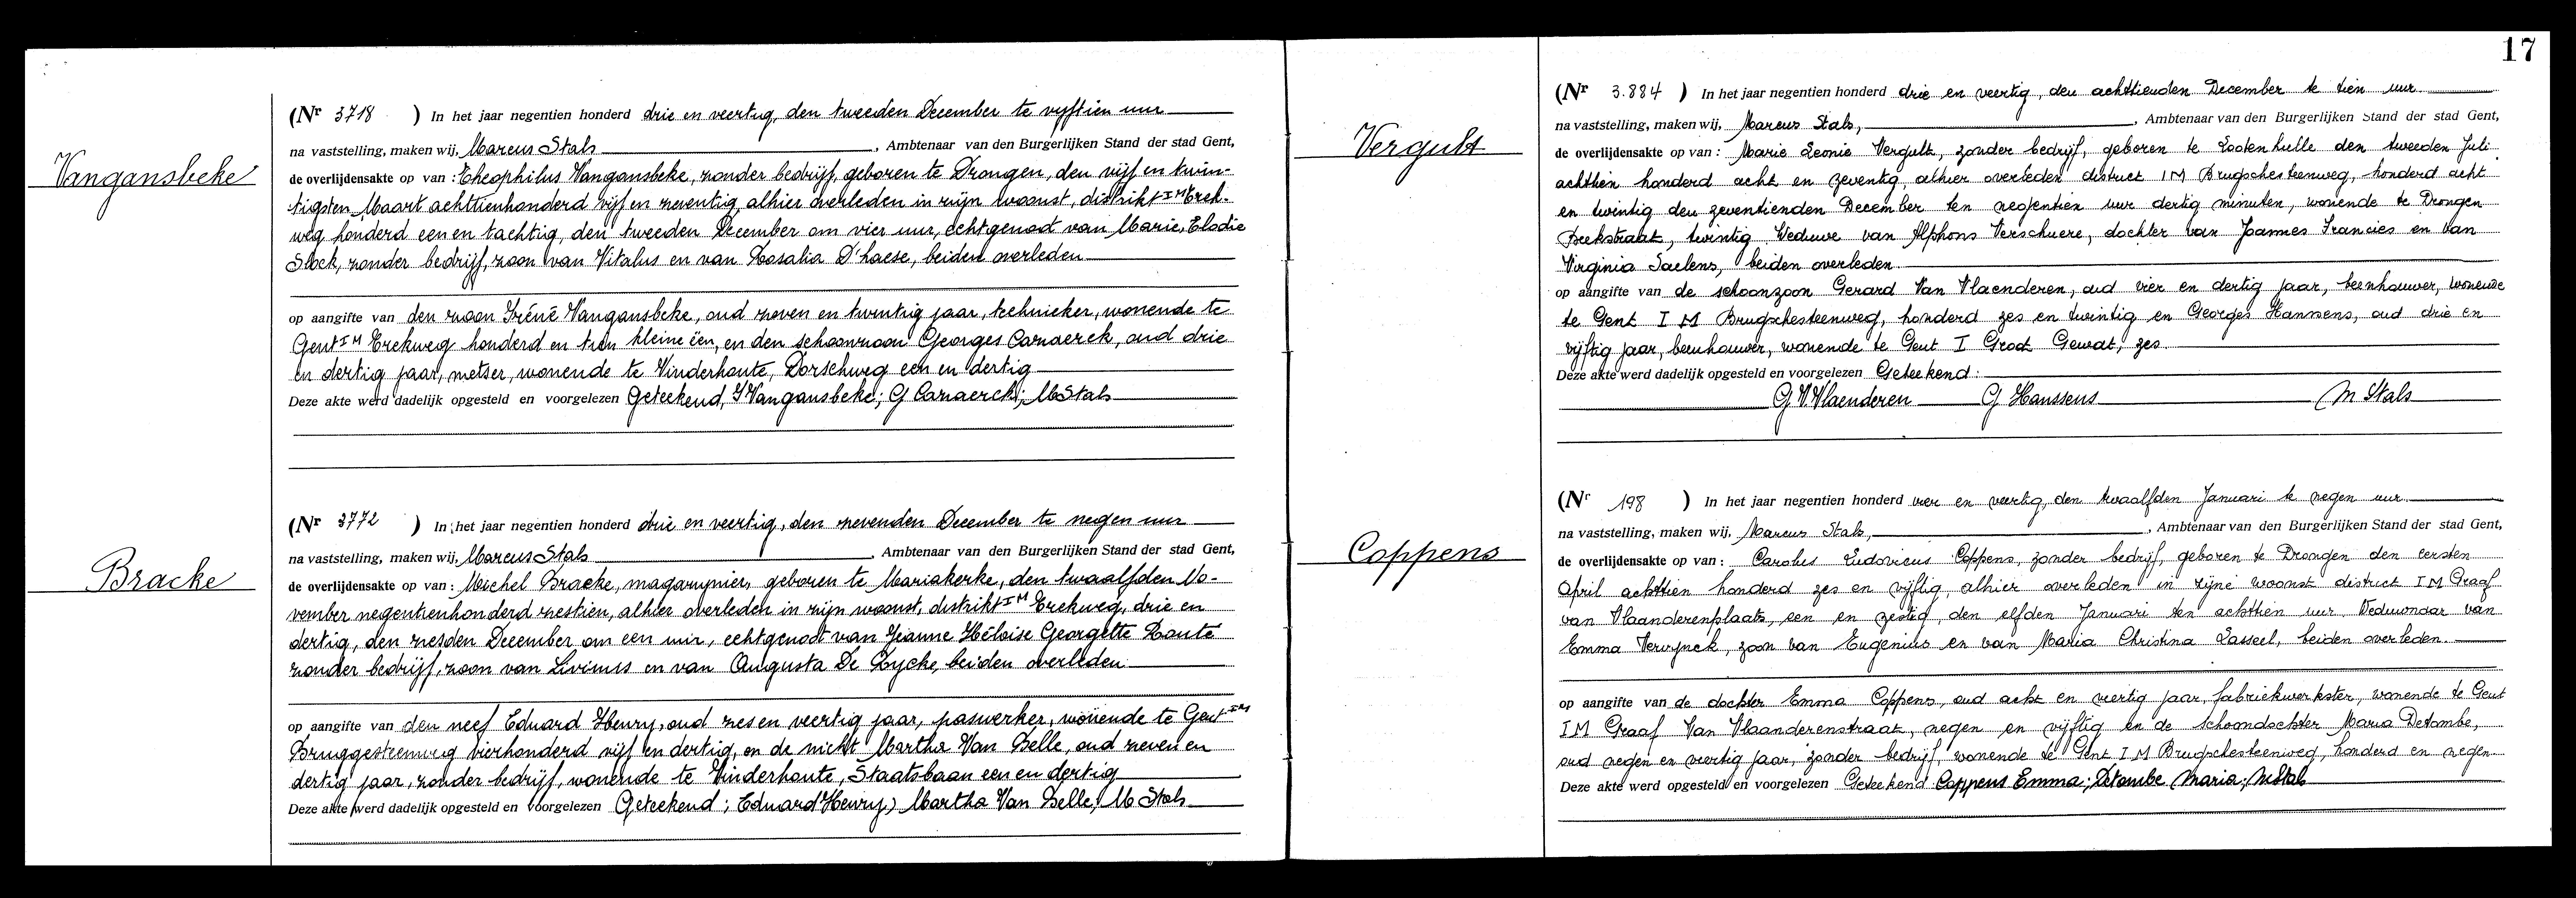 Vangansbeke
(Nr 3718 ) In het jaar negentien honderd drie en veertig, den tweeden December te vijftien uur
na vaststelling, maken wij, Marcus Stals, Ambtenaar van den Burgerlijken Stand der stad Gent,
de overlijdensakte op van : Theophilus Vangansbeke, zonder bedrijf, geboren te Drongen, den vijf en twin-
tigsten Maart achttienhonderd vijf en zeventig, alhier overleden in zijn woonst, distrikt IM Erek-
weg honderd een en tachtig, den tweeden December om vier uur, echtgenoot van Marie, Elodie
Slock, zonder bedrijf, zoon van Vitalus en van Rosalia D'haese, beiden overleden
op aangifte van den zoon Iréné Vangansbeke, oud zeven en twintig jaar, technieker, wonende te
Gent IM Erekweg honderd en tien kleine één, en den schoonzoon Georges Carnaerck, oud drie
en dertig jaar, metser, wonende te Vinderhoute, Dorschweg een en dertig
Deze akte werd dadelijk opgesteld en voorgelezen Geteekend, I Vangansbeke; G Carnaerck; M Stals
Bracke
(Nr 3772 ) In het jaar negentien honderd drie en veertig, den zevenden December te negen uur
na vaststelling, maken wij, Marcus Stals, Ambtenaar van den Burgerlijken Stand der stad Gent,
de overlijdensakte op van : Michel Bracke, magazynier, geboren te Mariakerke, den twaalfden No-
vember negentienhonderd zestien, alhier overleden in zijn woonst, distrikt IM Erekweg, drie en
dertig, den zesden December om een uur, echtgenoot van Jeanne Héloise Georgette Route
zonder bedrijf, zoon van Livinus en van Augusta De Rycke, beiden overleden
op aangifte van den neef Eduard Henry, oud zes en veertig jaar, paswerker, wonende te Gent IM
Bruggesteenweg vierhonderd vijf en dertig, en de nicht Martha Van Belle, oud zeven en
dertig jaar, zonder bedrijf, wonende te Vinderhoute, Staatsbaan een en dertig
Deze akte werd dadelijk opgesteld en voorgelezen Geteekend; Eduard Henry, Martha Van Belle, M Stals
17
Vergult
(Nr 3.884 ) In het jaar negentien honderd drie en veertig, den achttienden December te tien uur
na vaststelling, maken wij, Marcus Stals, Ambtenaar van den Burgerlijken Stand der stad Gent,
de overlijdensakte op van : Marie Leonie Vergult, zonder bedrijf, geboren te Lootenhulle den tweeden Juli
achttien honderd acht en zeventig, alhier overleden district IM Brugschesteenweg, honderd acht
en twintig den zeventienden December ten negentien uur dertig minuten, wonende te Drongen
Beekstraat, twintig Weduwe van Alphons Verschuere, dochter van Joannes Francies en van
Virginia Saelens, beiden overleden
op aangifte van de schoonzoon Gerard Van Vlaenderen, oud vier en dertig jaar, beenhouwer, wonende
te Gent I M Brugschesteenweg, honderd zes en twintig en Georges Hanssens, oud drie en
vijftig jaar, beenhouwer, wonende te Gent I Groot Gewat, zes
Deze akte werd dadelijk opgesteld en voorgelezen Geteekend:
G V.Vlaenderen G Hanssens M Stals
Coppens
(Nr 198 ) In het jaar negentien honderd vier en veertig, den twaalfden Januari te negen uur
na vaststelling, maken wij, Marcus Stals, Ambtenaar van den Burgerlijken Stand der stad Gent,
de overlijdensakte op van : Carolus Ludovicus Coppens, zonder bedrijf, geboren te Drongen den eersten
April achttien honderd zes en vijftig, alhier overleden in zijne woonst district IM Graaf
van Vlaanderenplaats, een en zestig, den elfden Januari ten achttien uur Weduwnaar van
Emma Verwynck, zoon van Eugenius en van Maria Christina Lasseel, beiden overleden.
op aangifte van de dochter Emma Coppens, oud acht en veertig jaar, fabriekwerkster, wonende te Gent
IM Graaf Van Vlaanderenstraat, negen en vijftig en de schoondochter Maria Detombe,
oud negen en veertig jaar, zonder bedrijf, wonende te Gent IM Brugschesteenweg, honderd en negen
Deze akte werd opgesteld en voorgelezen Geteekend Coppens Emma; Detombe Maria; MStals